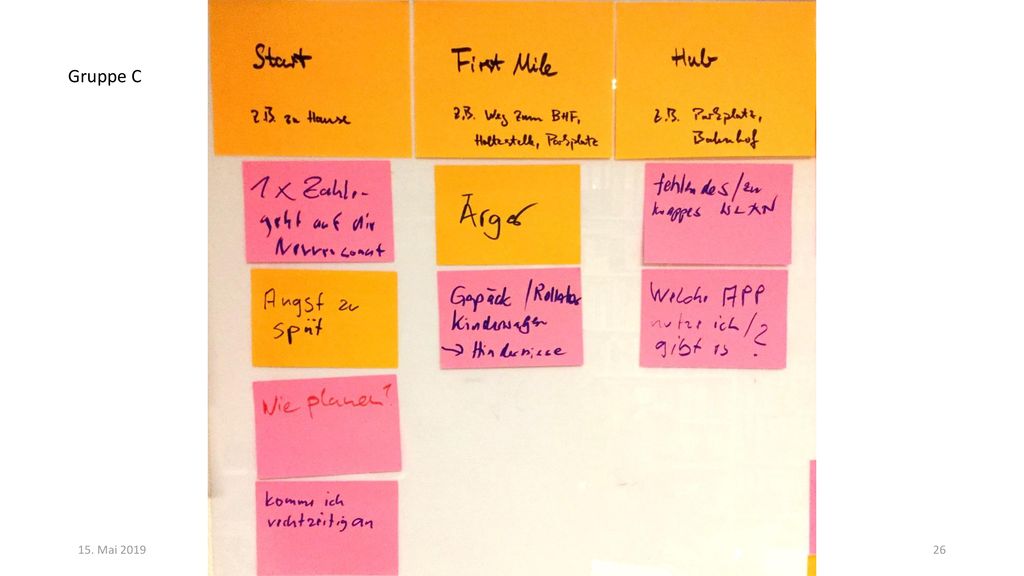 Gruppe C
Start
z.B. zu Hause
First Mile
z.B. Weg zum BHF,
Haltestelle, Parkplatz
Hub
z.B. Parkplatz,
Bahnhof
1x Zahlen
geht auf die
Nerven
Angst zu
spät
Wie planen?
komme ich
rechtzeitig an
Ärger
Gepäck / Rollator
Kinderwagen
→ Hindernisse
fehlendes/zu
knappes WLAN
Welche APP
nutze ich /
gibt es ?
15. Mai 2019
26